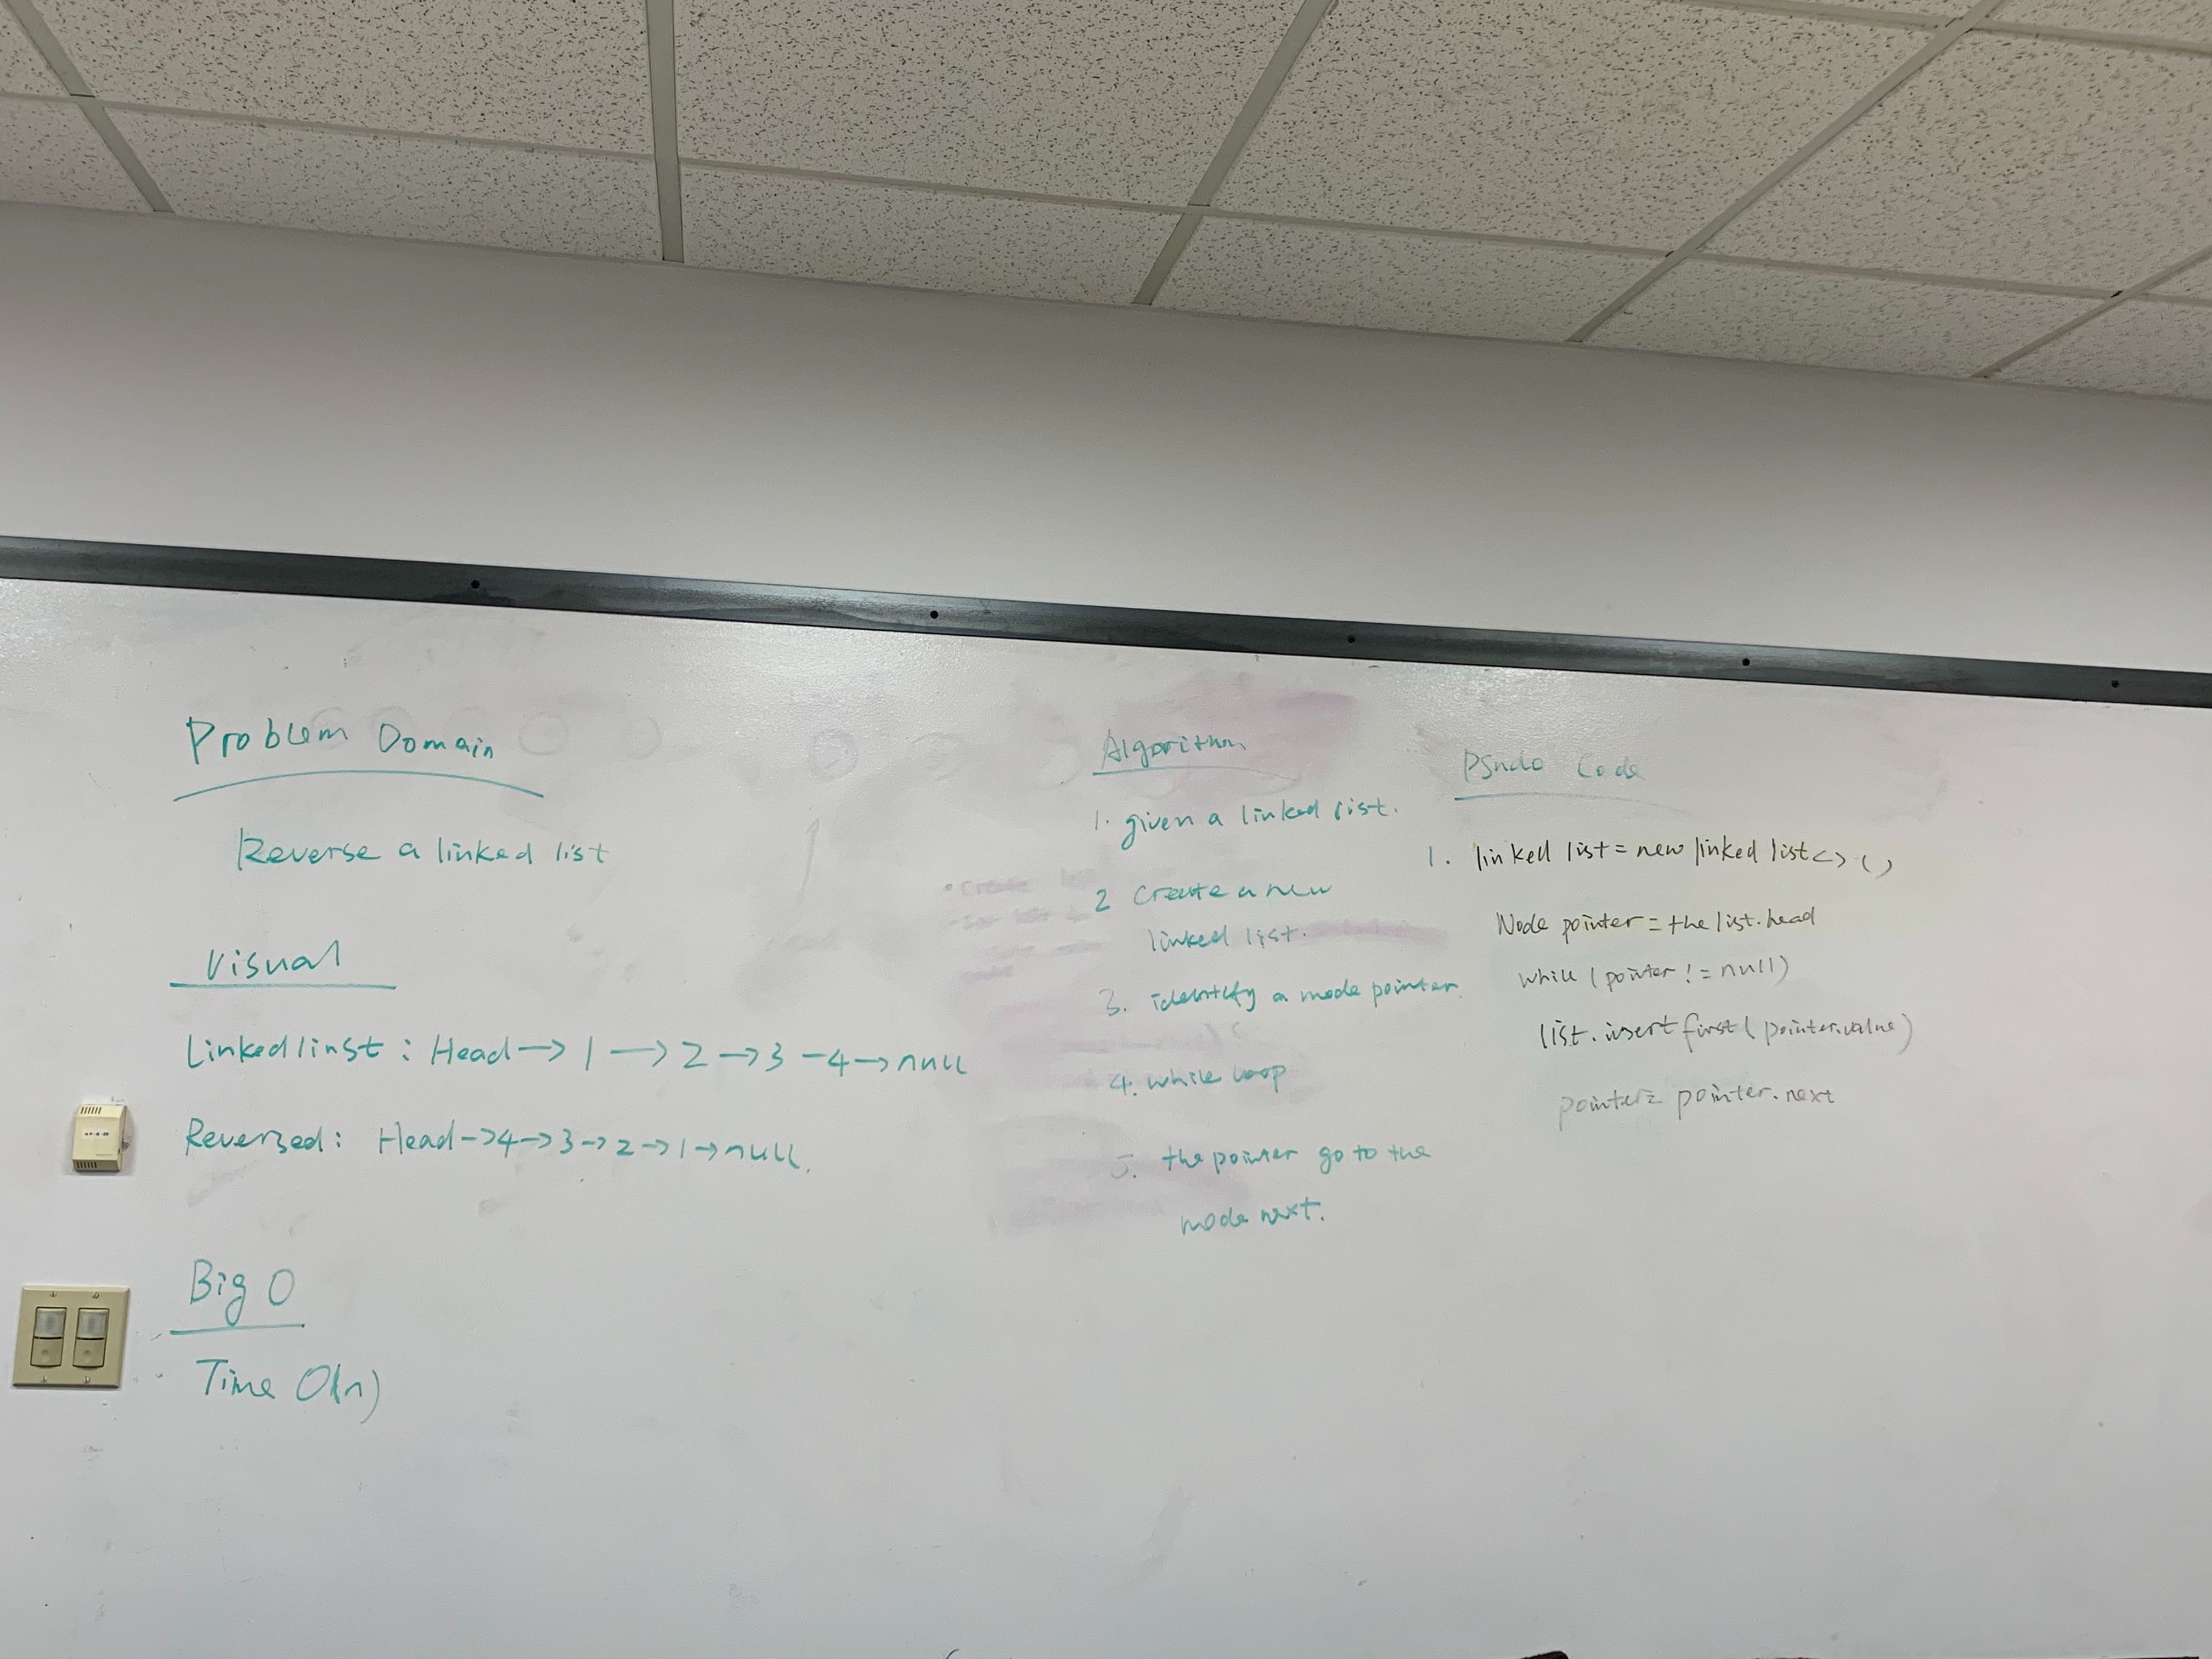 Problem Domain
Reverse a linked list
Visual
Linkedlinst : Head -> 1 -> 2 -> 3 - 4 -> null
Reversed : Head -> 4 -> 3 -> 2 -> 1 -> null.
Big O
Time O(n)
Algorithm
1. given a linked list.
2 Create a new
linked list.
3. identify a node pointer.
4. while loop
5. the pointer go to the
node next.
Psudo Code
1. linked list = new linked list <> ()
Node pointer = the list.head
while (pointer != null)
list.insert first (pointer.value)
pointer = pointer.next